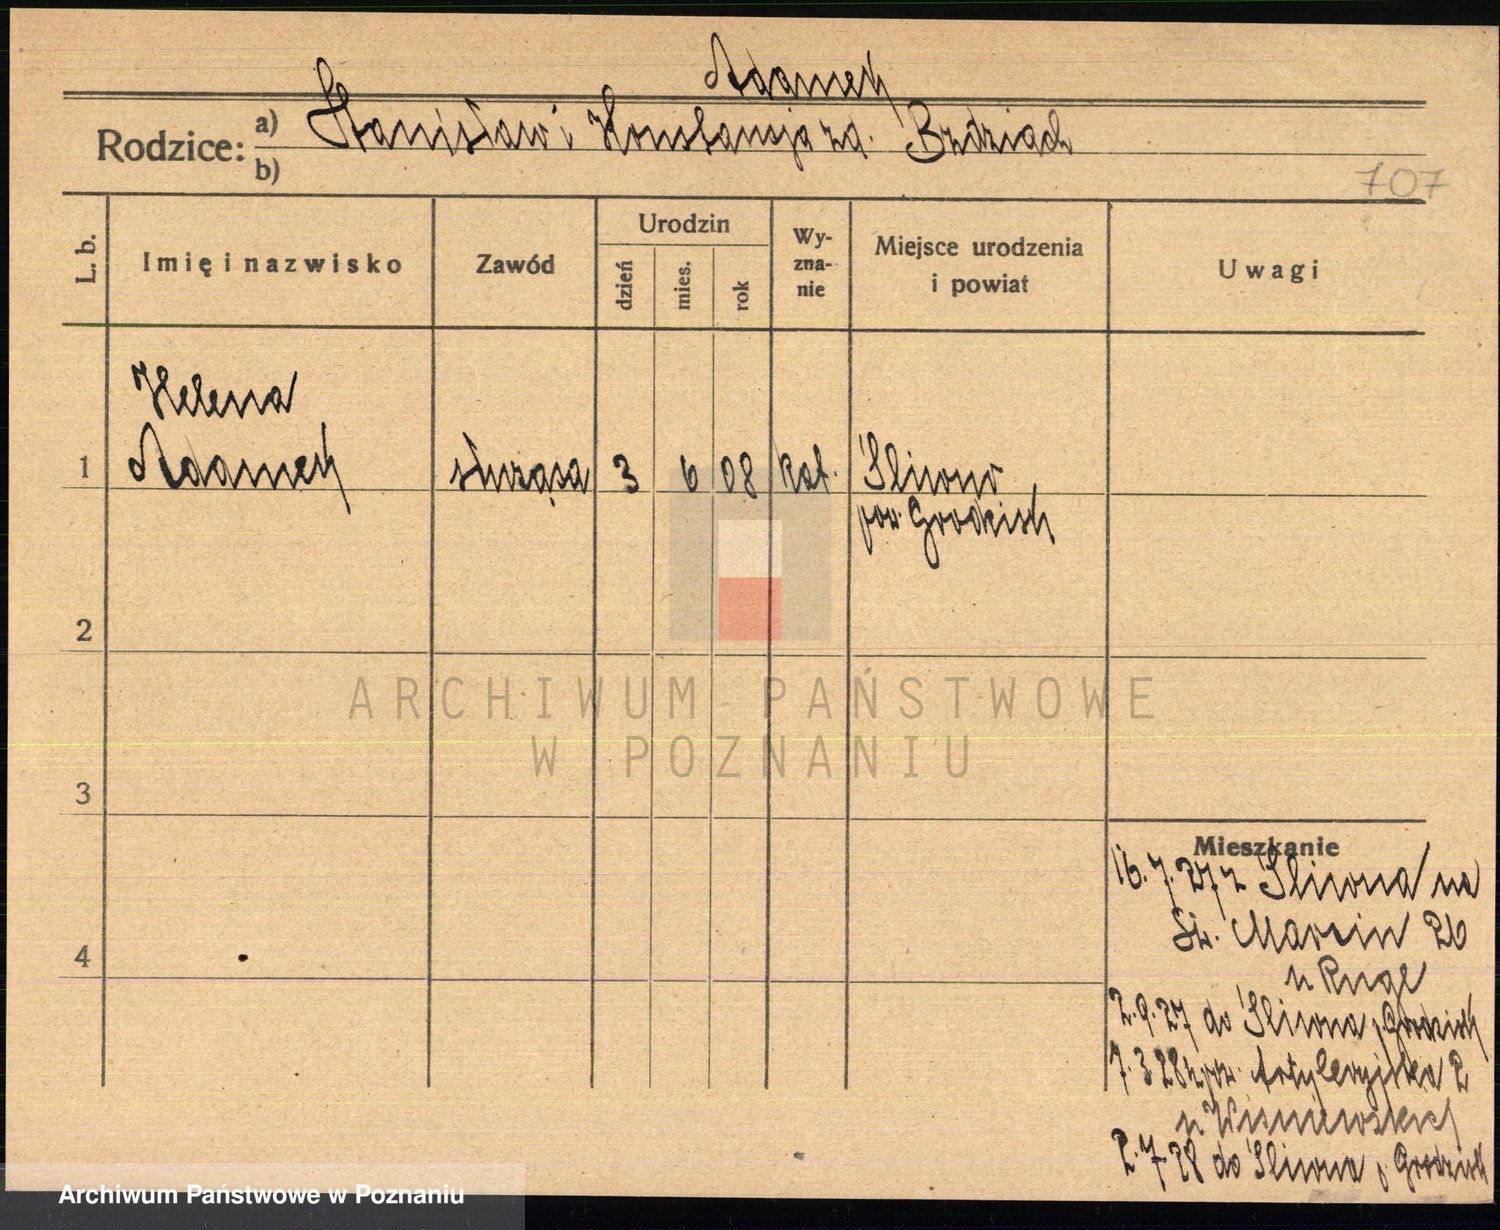 Adamek
Rodzice: a) Stanisław i Konstancja za. Brdziach
b)
707
L. b.
Imię i nazwisko
Zawód
Urodzin
dzień
mies.
rok
Wy-
zna-
nie
Miejsce urodzenia
i powiat
Uwagi
Helena
1 Adamek służąca 3 6 08 kat. Śliwno
pow. Grodzisk
2
ARCHIWUM PAŃSTWOWE
W POZNANIU
3
Mieszkanie
16.7.27 z Śliwna na
Św. Marcin 26
u Ruge
4
2.9.27 do Śliwna p. Grodzisk
7.3 28 Artyleryjska 2
u Wiśniewskiej
2.7.28 do Śliwna p. Grodzisk
Archiwum Państwowe w Poznaniu